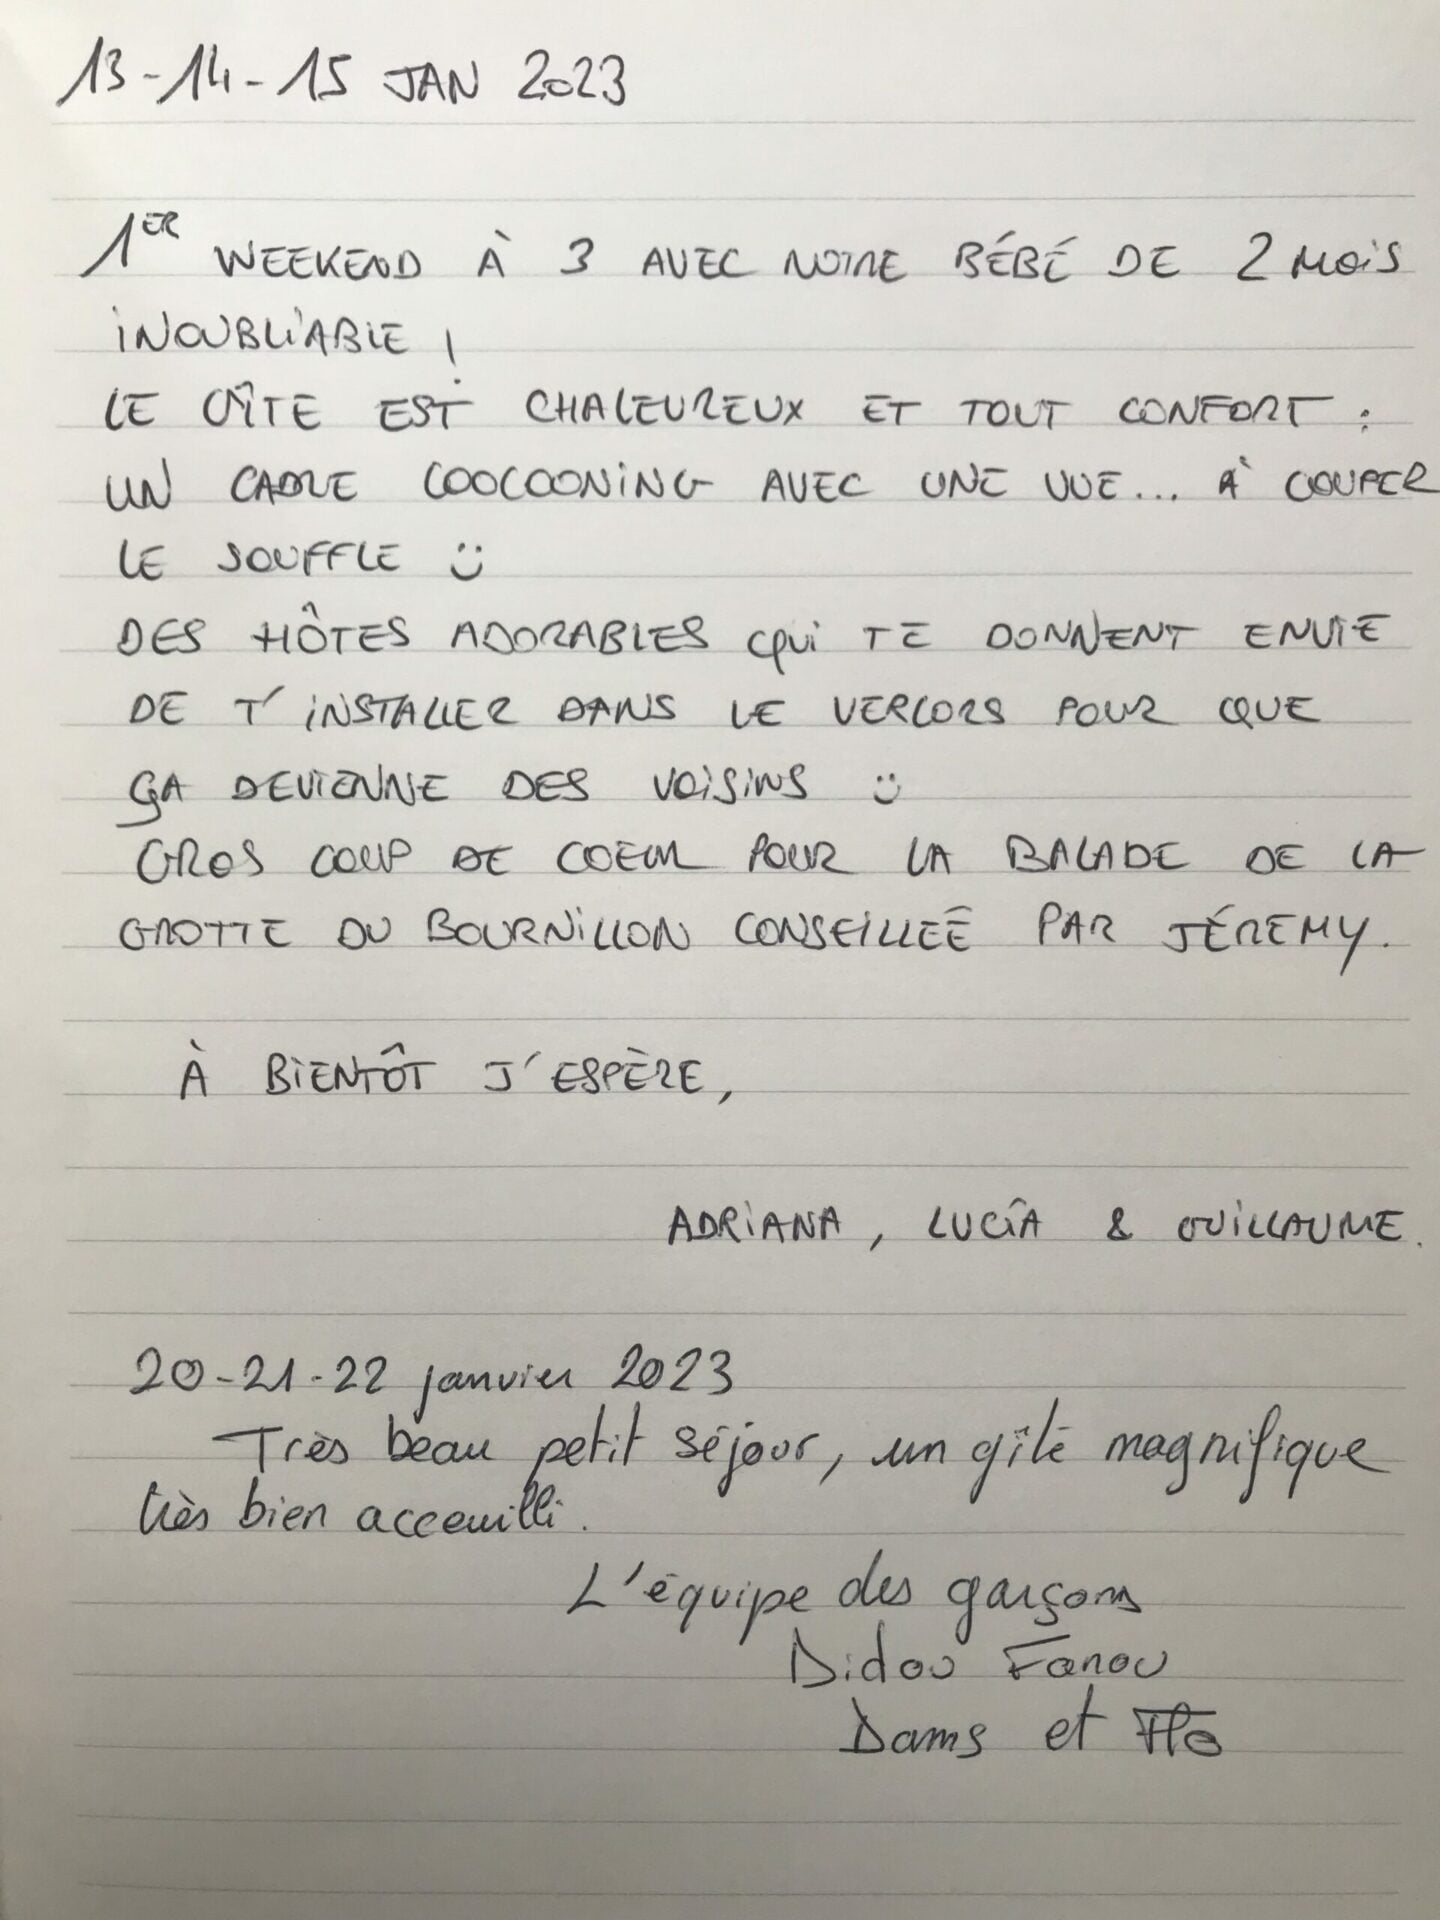 13-14-15 JAN 2023
1ER WEEKEND À 3 AVEC NOTRE BÉBÉ DE 2 MOIS
INOUBLIABLE !
LE GÎTE EST CHALEUREUX ET TOUT CONFORT :
UN CADRE COOCOONING AVEC UNE VUE... À COUPER
LE SOUFFLE :)
DES HÔTES ADORABLES qui TE DONNENT ENVIE
DE T'INSTALLER DANS LE VERCORS POUR QUE
ÇA DEVIENNE DES VOISINS :)
GROS COUP DE COEUR POUR LA BALADE DE LA
GROTTE DU BOURNILLON CONSEILLÉE PAR JÉREMY.
À BIENTÔT J'ESPÈRE,
ADRIANA, LUCÍA & GUILLAUME.
20-21-22 janvier 2023
Très beau petit séjour, un gîte magnifique
très bien acceuilli.
L'équipe des garçons
Didou Fanou
Dams et Flo